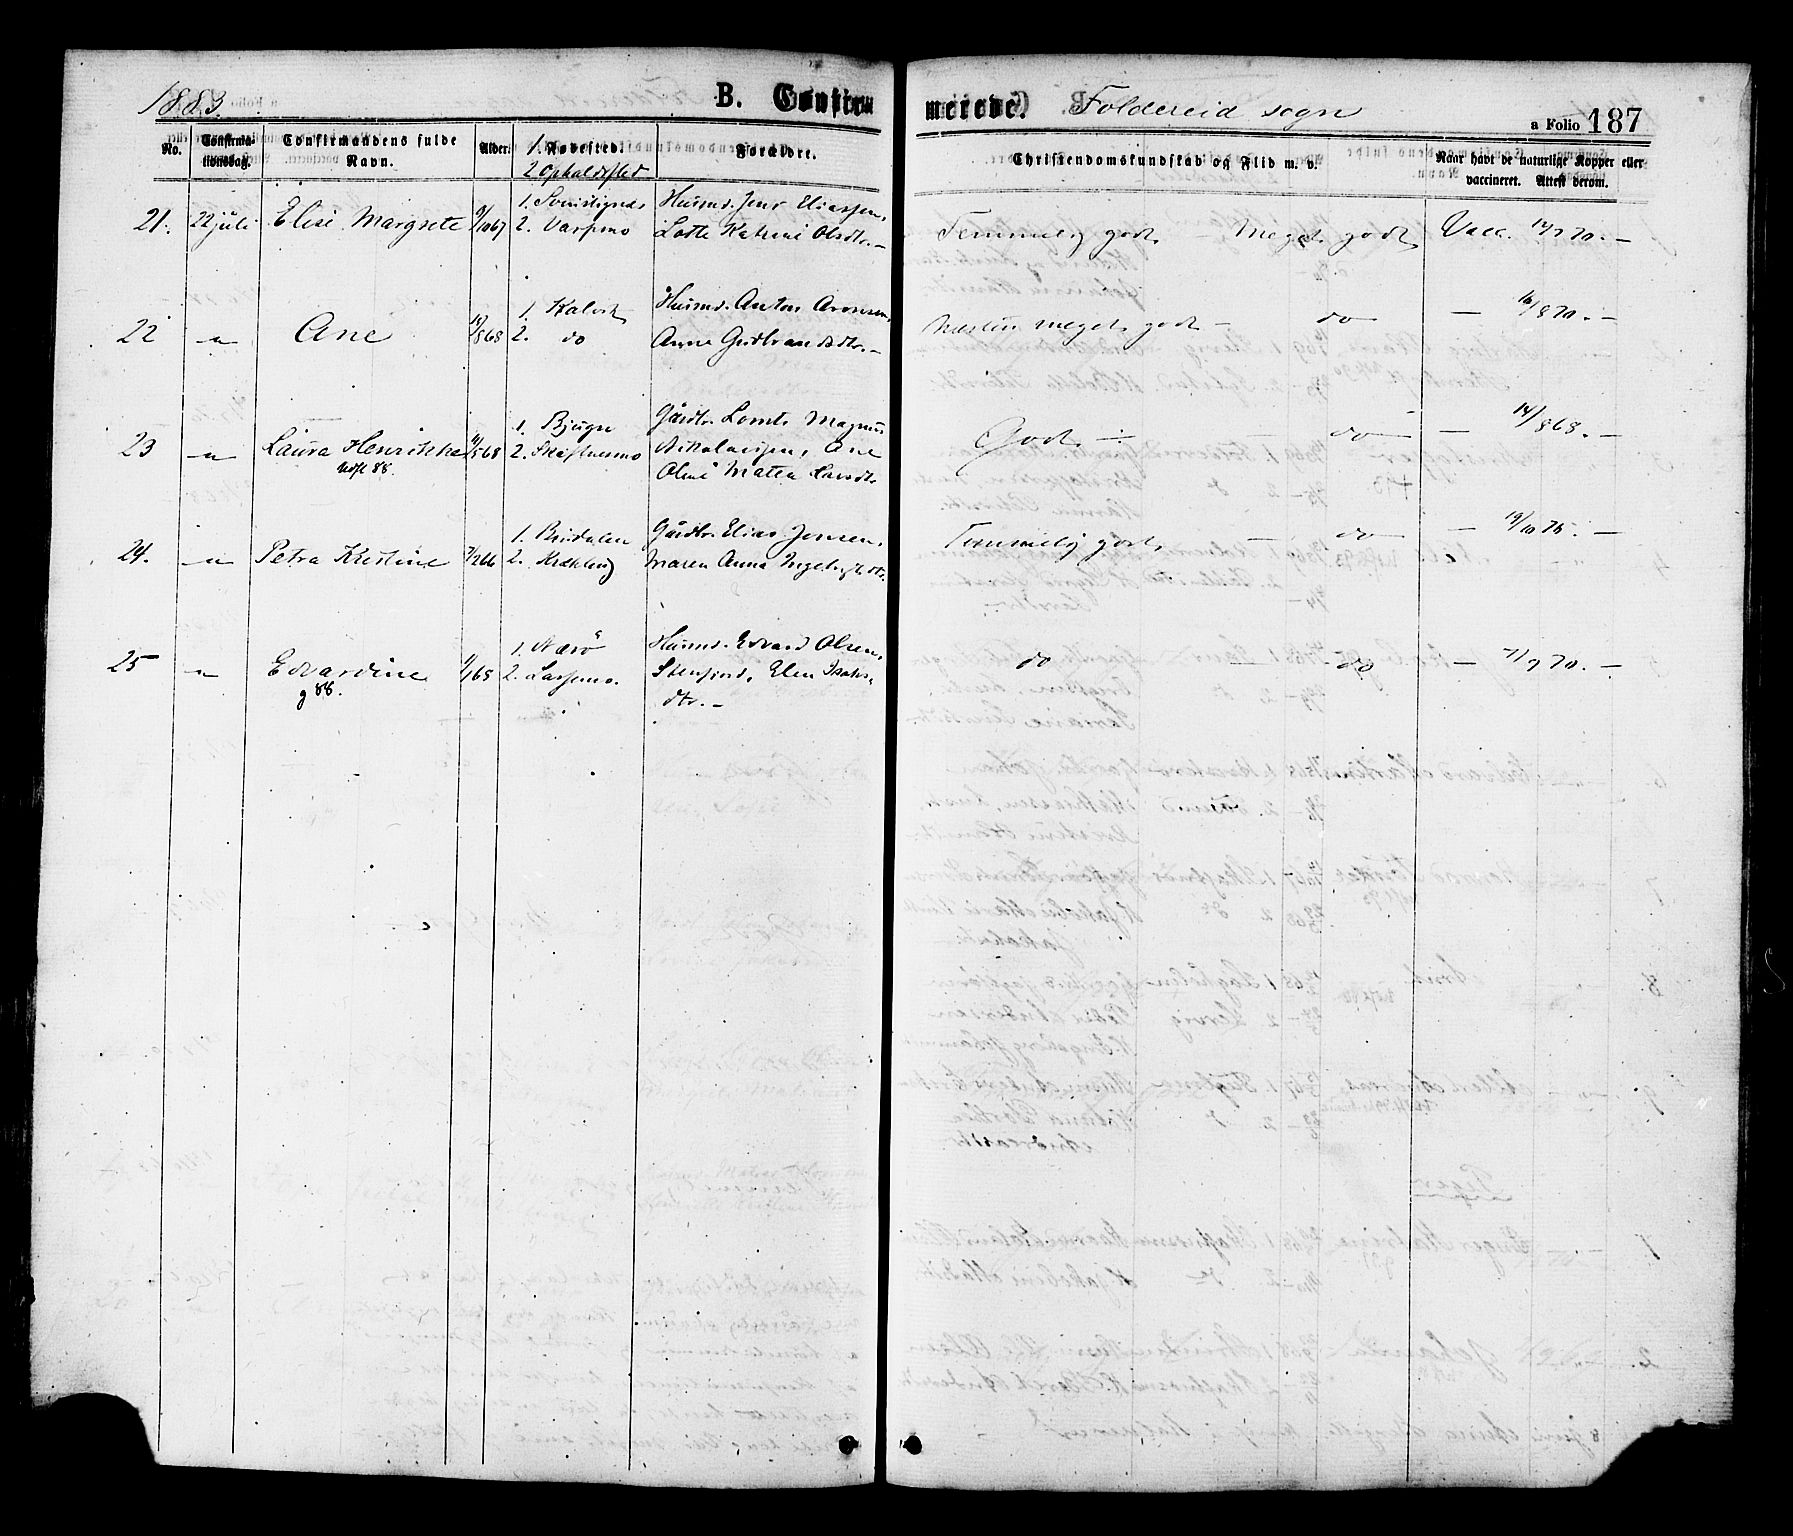 1883.
B. Confirm
merede. Foldereid sogn
a Folio 187
No.
Confirma-
tionsdag.
Confirmandens fulde
Navn.
Alder.
1. Fødested.
2 Opholdsted
Forældre.
Christendomskundskab og Flid m. v.
Naar havt de naturlige Kopper eller
vaccineret. Attest derom.
21. 22 juli Elise Margrete 9/10 67
1.
2. Varpmo
Husmd. Jens Eliassen,
Lotte Katrine Olsdtr. –
Temmelig godt – Meget godt Vacc. 70. –
22 – " – Ane 18/8 68
1. Kalvik
2. do
Husmd. Anton Aronsen,
Anne Gudbrandsdtr. –
Næsten meget godt – do – 16/8 70. –
23 – " – Laura Henrikka 68
utfl. 88.
1. Bjugn
2.
Gårdbr. Lornts Magnus
Nikolaissen, Ane
Oline Matea Larsdtr.
Godt – – do – 14/8 68. –
24. – " – Petra Kristine 7/2 66
1. Rindalen
2.
Gårdbr. Elias Jensen,
Maren Anna Ingebrigtsdtr.
Temmelig godt, – do – 19/10 75. –
25 – " – Edvardine 68
g 88.
1. Nærö
2. Lassemo.
Husmd. Edvard Olsen,
Stenfjord, Elen Isaks-
dtr. –
do – do – 70. –